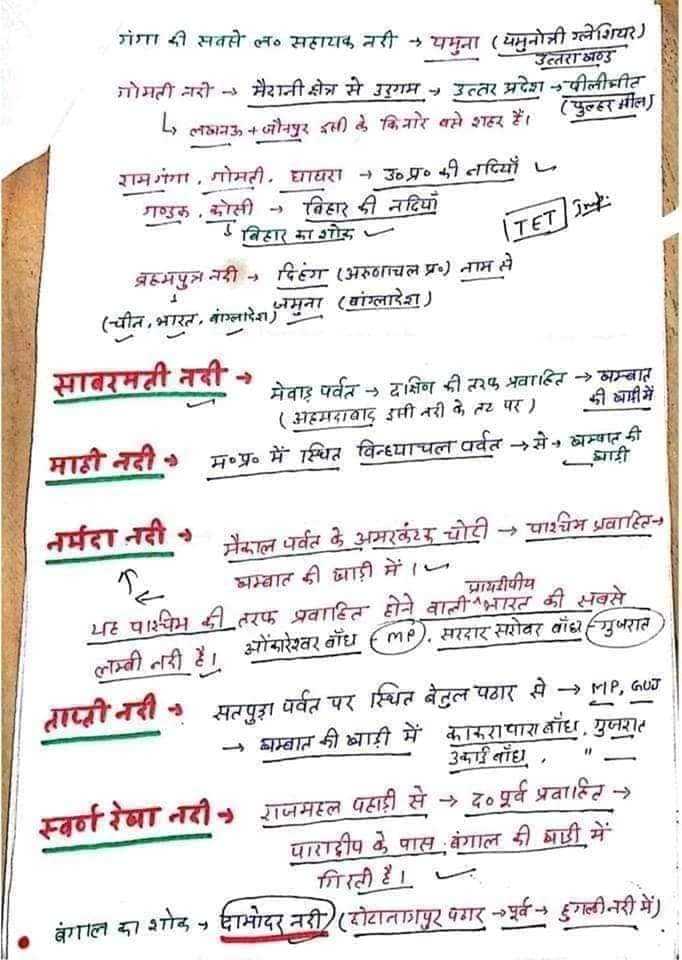 गंगा की सबसे ल० सहायक नदी → यमुना (यमुनोत्री ग्लेशियर)
उत्तराखण्ड
गोमती नदी → मैदानी क्षेत्र से उद्गम → उत्तर प्रदेश → पीलीभीत
(फुल्हर झील)
↳ लखनऊ + जौनपुर इसी के किनारे बसे शहर हैं।
रामगंगा, गोमती, घाघरा → उ०प्र० की नदियाँ
गण्डक, कोसी → बिहार की नदियाँ
↓ बिहार का शोक
[TET] Imp.
ब्रह्मपुत्र नदी → दिहंग (अरुणाचल प्र०) नाम से
↓ जमुना (बांग्लादेश)
(चीन, भारत, बांग्लादेश)
साबरमती नदी → मेवाड़ पर्वत → दक्षिण की तरफ प्रवाहित → खम्बात
की खाड़ी में
(अहमदाबाद इसी नदी के तट पर)
माही नदी → म०प्र० में स्थित विन्ध्याचल पर्वत → से → खम्बात की
खाड़ी
नर्मदा नदी → मैकाल पर्वत के अमरकंटक चोटी → पश्चिम प्रवाहित →
खम्बात की खाड़ी में।
प्रायद्वीपीय
यह पश्चिम की तरफ प्रवाहित होने वाली ^ भारत की सबसे
लम्बी नदी है। ओंकारेश्वर बाँध - MP, सरदार सरोवर बाँध - गुजरात
ताप्ती नदी → सतपुड़ा पर्वत पर स्थित बेतुल पठार से → MP, GUJ
→ खम्बात की खाड़ी में काकरापारा बाँध, गुजरात
उकाई बाँध, "
स्वर्ण रेखा नदी → राजमहल पहाड़ी से → द० पूर्व प्रवाहित →
पारादीप के पास बंगाल की खाड़ी में
गिरती है।
• बंगाल का शोक → दामोदर नदी (छोटानागपुर पठार → पूर्व → हुगली नदी में)